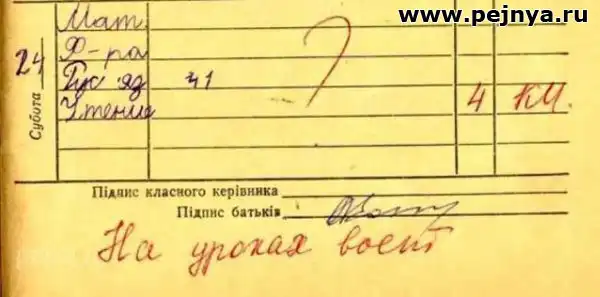 www.pejnya.ru
Мат.
Ф-ра
24
Рус яз 41
Чтение 4 КМ.
Субота
Підпис класного керівника
Підпис батьків
На уроках воет